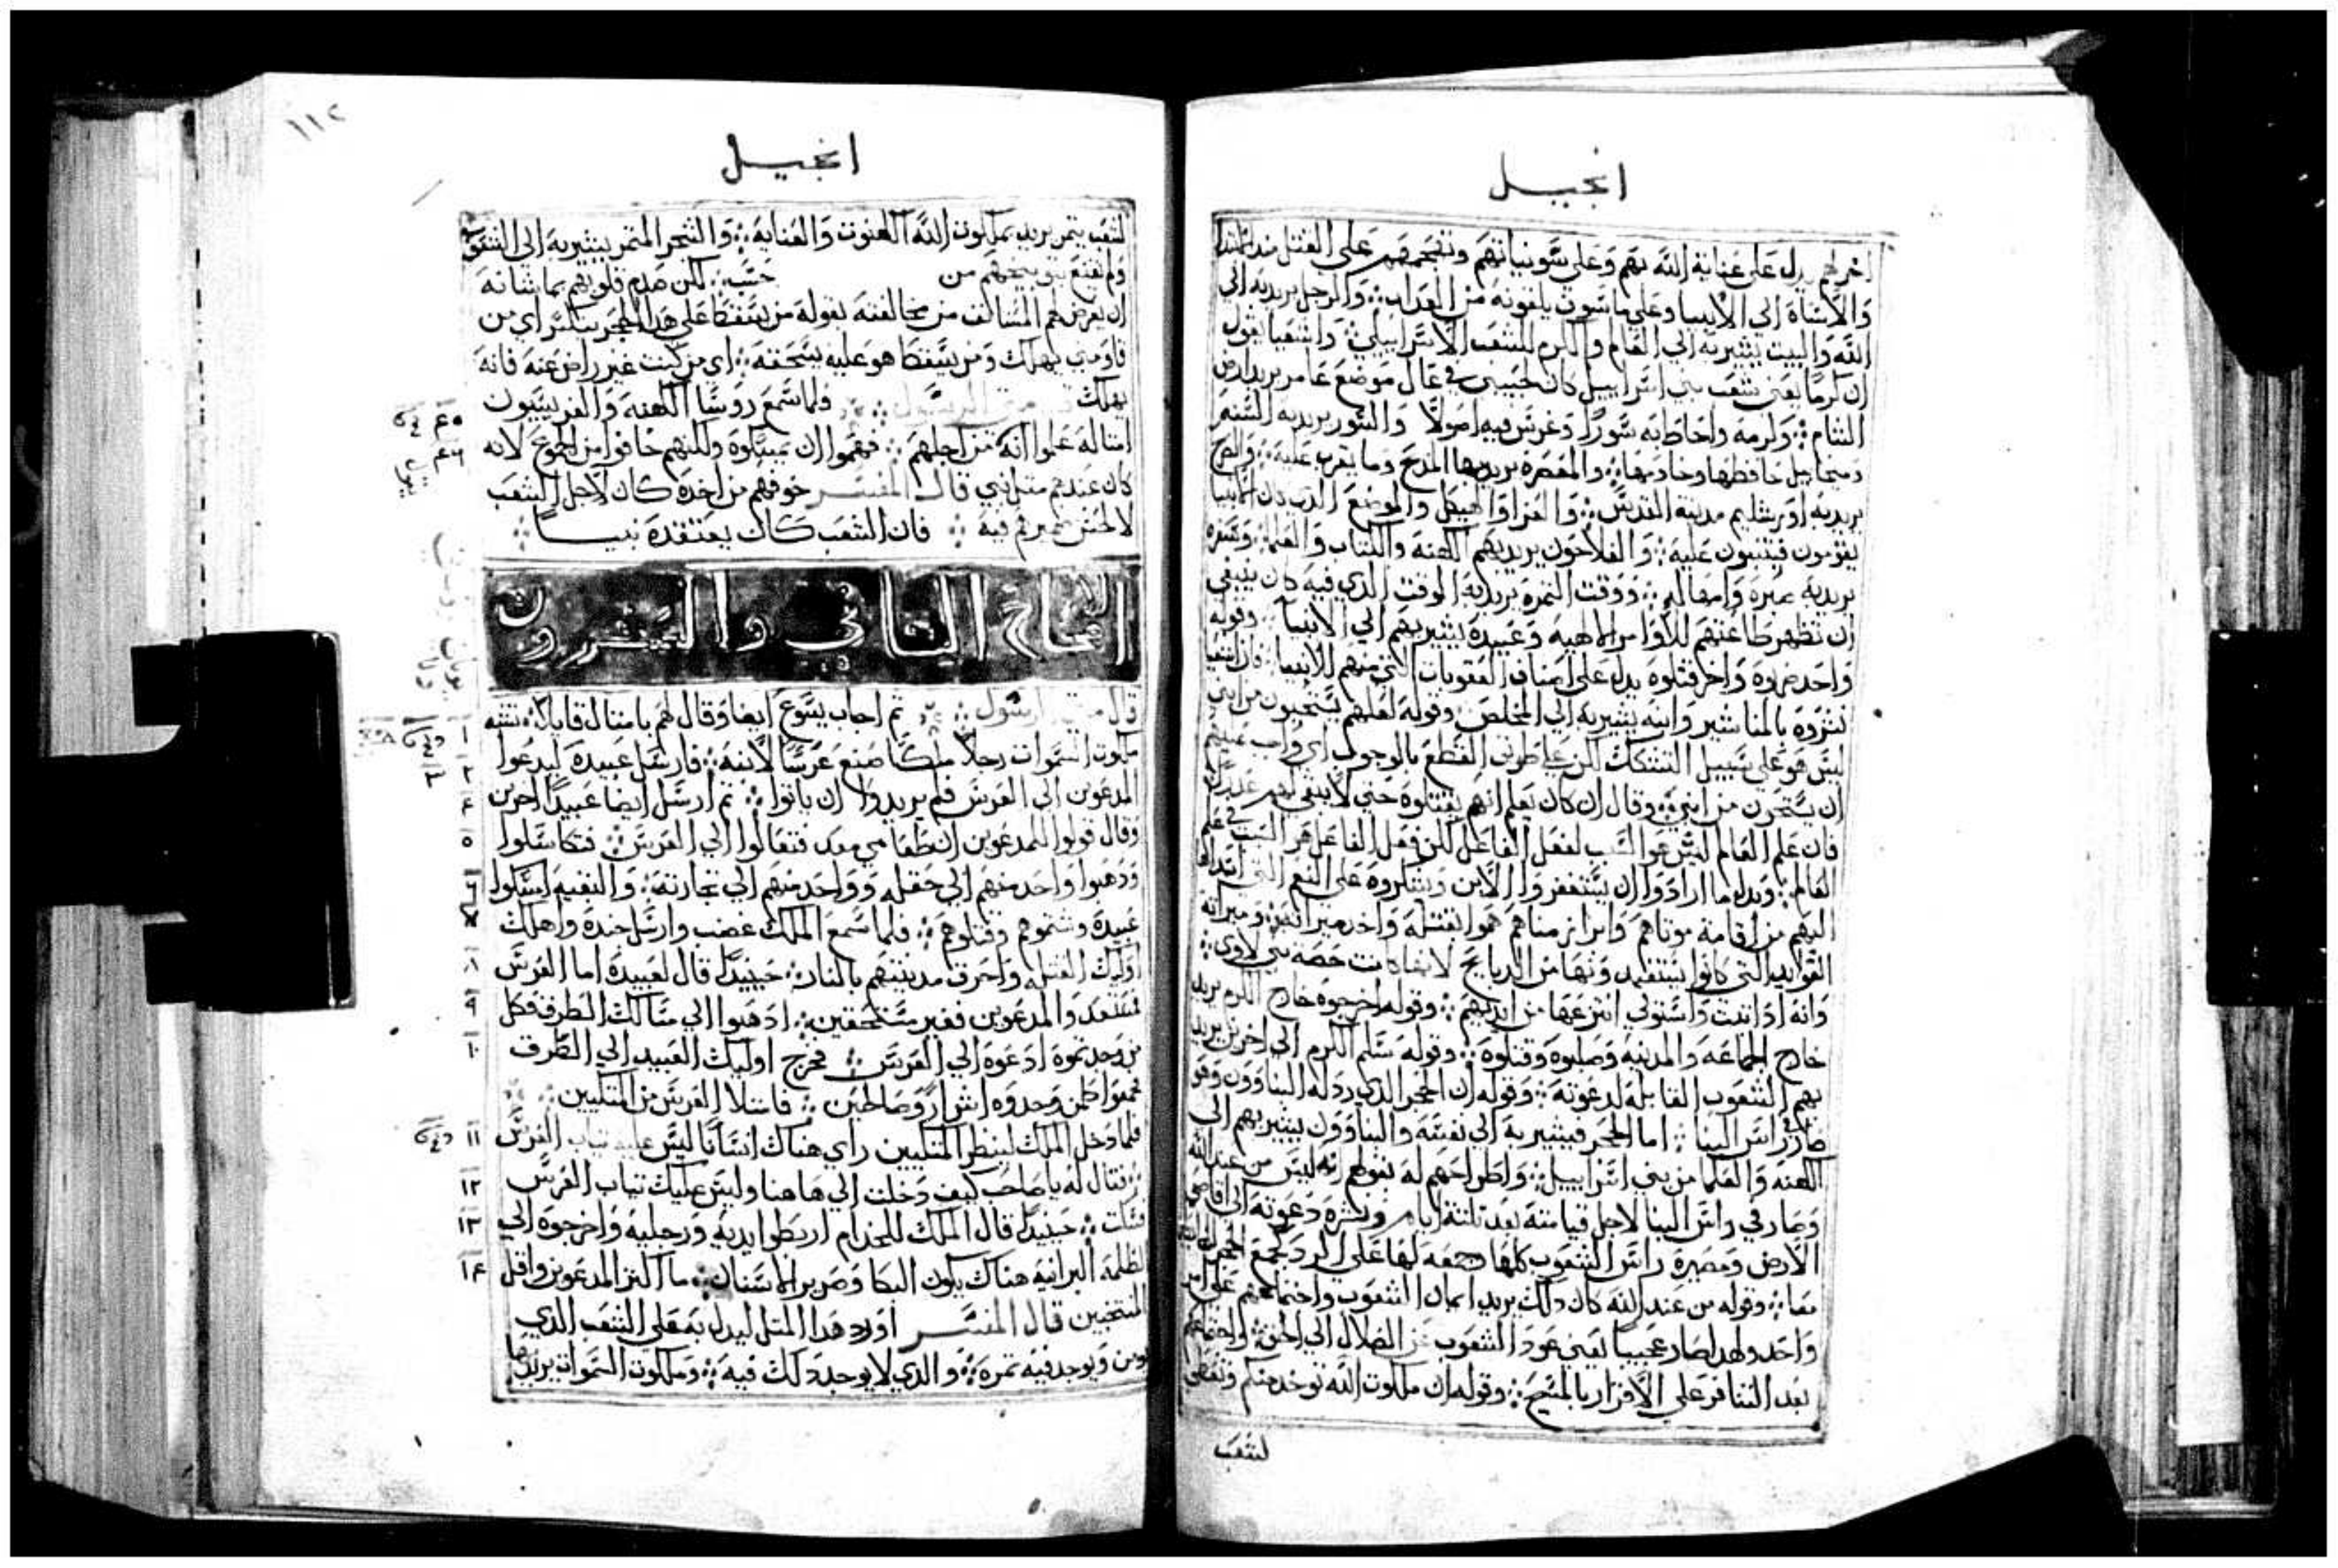 انجيل
اخر لهم يدل على عناية الله بهم وعلى شو نياتهم وتقحمهم على القتل
والاساة الي الانبيا وعلى ما سوف يلقونه من العذاب ⁘ والرجل يريد به الي
الله والبيت يشير به الي العالم والكرم للشعب الاسراييلي ⁘ واشعيا يقول
ان كرما يعني شعب بني اسراييل كان لحبيبي في عال موضع عامر يريد ارض
الشام ⁘ وكرمه واحاط به سورا وغرس فيه اصولا والسور يريد به السنه
وميخاييل حافظها وخادمها ⁘ والمعصرة يريد بها المذبح وما يقرب عليه ⁘ والبرج
يريد به اورشليم مدينة القدس ⁘ والهيكل والموضع الذي كان الانبيا
يقومون فيتنبون عليه ⁘ والفلاحون يريد بهم الكهنه والكتاب والعلما ⁘ وسفره
يريد به صبره وامهاله ⁘ ووقت الثمرة يريد به الوقت الذي فيه كان ينبغي
ان تظهر طاعتهم للاوامر الالهيه وعبيده يشير بهم الي الانبيا ⁘ وقوله
واحد ضربوه واخر قتلوه يدل على اصناف العقوبات التي منهم للانبيا ⁘ فان اشعيا
نشروه بالمناشير وابنه يشير به الي المخلص ⁘ وقوله لعلهم يستحيون من ابني
ليس هو على سبيل التشكك لكن على طريق القطع بالوجوب اي واجب عليهم
ان يستحون من ابني ⁘ وقال ان كان يعلم انهم يقتلوه حتى لا يبقي لهم عذر
فان علم العالم ليس هو السبب لفعل الفاعل لكن فعل الفاعل هو السبب في علم
العالم ⁘ وبدل ما ارادوا ان يستغفروا الابن ويشكروه على النعم التي ابتداها
اليهم من اقامة موتاهم وابرا زمناهم هموا بقتله واخد ميراثه ⁘ وميراثه
الفوايد التي كانوا يستفيدونها من الدبايح لانها كانت حصة بني لاوي ⁘
وانه اذا ثبت واستولي انتزعها من ايديهم ⁘ وقوله اخرجوه خارج الكرم يريد
خارج الجماعه والمدينه وصلبوه وقتلوه ⁘ وقوله سلم الكرم الي اخرين يريد
بهم الشعوب القابله لدعوته ⁘ وقوله ان الحجر الذي ردله البناوون وهو
صار راس البنا ⁘ اما الحجر فيشير به الي نفسه والبناوون يشير بهم الي
الكهنه والعلما من بني اسراييل ⁘ واطراحهم له بقولهم انه ليس من عند الله
وصار في راس البنا لاجل قيامته بعد تلتة ايام ونشره دعوته الي اقاصي
الارض ومصيره راس الشعوب كلها
معا ⁘ وقوله من عند الله كان ذلك يريد ايمان الشعوب واجتماعهم على امر
واحد ولهدا صار عجيبا يعني عود الشعوب من الضلال الي الحق ⁘ واجتماعهم
بعد التنافر على الاقرار بالمسيح ⁘ وقوله ان ملكوت الله توخد منكم وتعطي
لشعب
١١٢
انجيل
لشعب يثمر يريد بملكوت الله الكهنوت والعنايه ⁘ والشجر المثمر يشير به الي الشعوب
ولم يقنع بتوبيخهم من حسب ⁘ لكن صدم قلوبهم بما شانه
ان يعرض لهم المتسالف من مخالفته بقوله من يسقط على هدا الحجر يتكسر اي من
قاومني يهلك ومن يسقط هو عليه يسحقه ⁘ اي من كنت غير راض عنه فانه
يهلك قال متى الرسول ⁘ فلما سمع روسا الكهنه والفريسيون
امثاله علموا انه من اجلهم ⁘ فهموا ان يمسكوه ولكنهم خافوا من الجموع لانه
كان عندهم مثل نبي قال المفسر خوفهم من اخده كان لاجل الشعب
لا لحسن ضميرهم فيه ⁘ فان الشعب كان يعتقده نبيا ⁘
الاصحاح الثاني والعشرون
قال متى الرسول ⁘ ثم اجاب يسوع ايضا وقال لهم بامثال قايلا ⁘ تشبه
ملكوت السموات رجلا ملكا صنع عرسا لابنه ⁘ فارسل عبيده ليدعوا
المدعوين الي العرس فلم يريدوا ان ياتوا ⁘ ثم ارسل ايضا عبيدا اخرين
وقال قولوا للمدعوين ان طعامي معد فتعالوا الي العرس ⁘ فتكاسلوا
ودهبوا واحد منهم الي حقله وواحد منهم الي تجارته ⁘ والبقيه امسكوا
عبيده وشتموهم وقتلوهم ⁘ فلما سمع الملك غضب وارسل جنده واهلك
اوليك القتله واحرق مدينتهم بالنار ⁘ حينيدا قال لعبيده اما العرس
فمستعد والمدعوين فغير مستحقين ⁘ ادهبوا الي مسالك الطرق فكل
من وجدتموه ادعوه الي العرس ⁘ فخرج اوليك العبيد الي الطرق
فجمعوا كلمن وجدوه اشرار وصالحين ⁘ فامتلا العرس من المتكيين ⁘
فلما دخل الملك لينظر المتكيين راي هناك انسانا ليس عليه تياب العرس
فقال له يا صاحب كيف دخلت الي هاهنا وليس عليك تياب العرس
فسكت ⁘ حينيدا قال الملك للخدام اربطوا ايديه ورجليه واخرجوه الي
الظلمه البرانيه هناك يكون البكا وصرير الاسنان ⁘ ما اكثر المدعوين واقل
المنتخبين قال المفسر اورد هدا المتل ليدل به على الشعب الذي
يومن ويوجد فيه ثمره ⁘ والذي لا يوجد دلك فيه ⁘ وملكوت السموات يريد بها